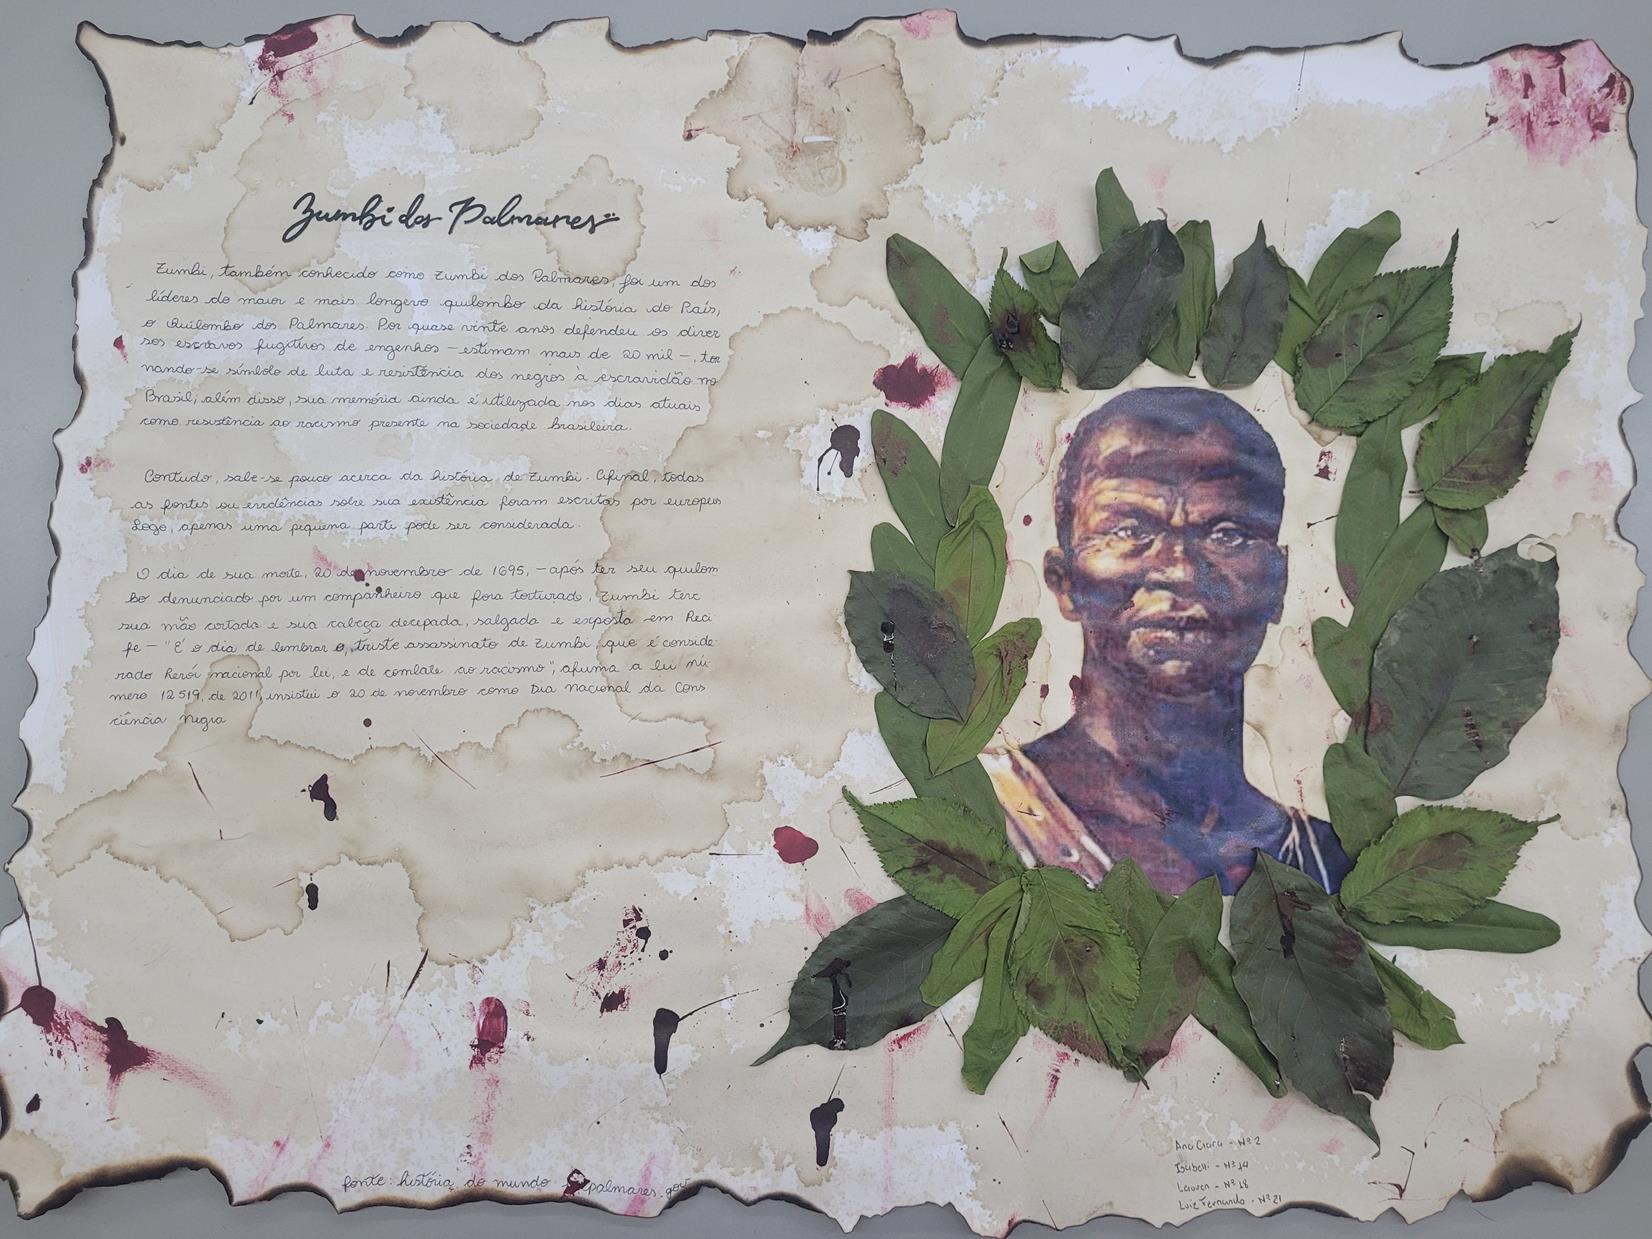 Zumbi dos Palmares
Zumbi, também conhecido como Zumbi dos Palmares, foi um dos
líderes do maior e mais longevo quilombo da história do País,
o Quilombo dos Palmares. Por quase vinte anos defendeu os diver
sos escravos fugitivos de engenhos – estimam mais de 20 mil –, tor
nando-se símbolo de luta e resistência dos negros à escravidão no
Brasil, além disso, sua memória ainda é utilizada nos dias atuais
como resistência ao racismo presente na sociedade brasileira.
Contudo, sabe-se pouco acerca da história de Zumbi. Afinal, todas
as fontes ou evidências sobre sua existência foram escritas por europeus
Logo, apenas uma pequena parti pode ser considerada.
O dia de sua morte, 20 de novembro de 1695, – após ter seu quilom
bo denunciado por um companheiro que fora torturado, Zumbi teve
sua mão cortada e sua cabeça decepada, salgada e exposta em Reci
fe – "É o dia de lembrar o triste assassinato de Zumbi, que é conside-
rado herói nacional por lei, e de combate ao racismo", afirma a lei nú-
mero 12.519, de 2011, insistui o 20 de novembro como Dia Nacional da Cons
ciência Negra
fonte: história do mundo palmares.gov
Ana Clara - Nº 2
Isabelli - Nº 14
Lauren - Nº 18
Luiz Fernando - Nº 21